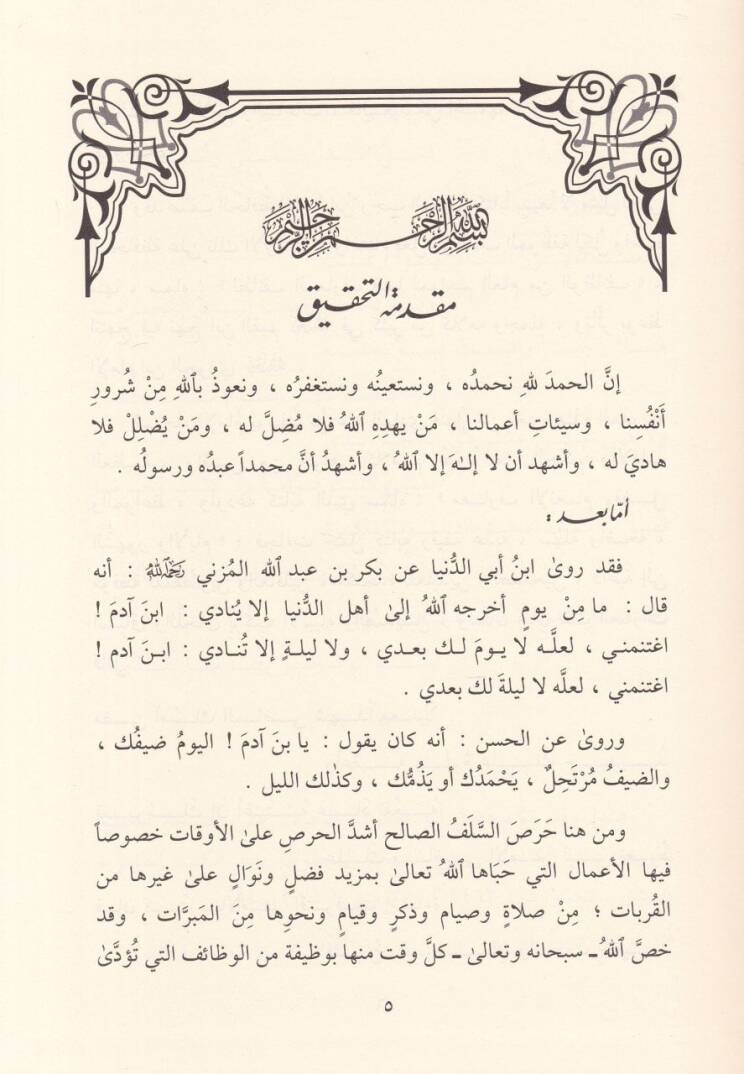 بسم الله الرحمن الرحيم
مقدمة التحقيق
إنَّ الحمدَ للهِ نحمدُه ، ونستعينُه ونستغفرُه ، ونعوذُ باللهِ مِنْ شُرورِ
أَنْفُسِنا ، وسيئاتِ أعمالنا ، مَنْ يهدِهِ اللهُ فلا مُضِلَّ له ، ومَنْ يُضْلِلْ فلا
هاديَ له ، وأشهد أن لا إلـٰهَ إلا اللهُ ، وأشهدُ أنَّ محمداً عبدُه ورسولُه .
أمّا بعد :
فقد روىٰ ابنُ أبي الدُّنيا عن بكر بن عبد الله المُزني رَحِمَهُ اللهُ : أنه
قال : ما مِنْ يومٍ أخرجه اللهُ إلىٰ أهل الدُّنيا إلا يُنادي : ابنَ آدمَ !
اغتنمنـي ، لعلَّـه لا يـومَ لـك بعـدي ، ولا ليلـةٍ إلا تُنـادي : ابـنَ آدم !
اغتنمني ، لعله لا ليلةَ لك بعدي .
وروىٰ عن الحسن : أنه كان يقول : يا بنَ آدمَ ! اليومُ ضيفُك ،
والضيفُ مُرْتَحِلٌ ، يَحْمَدُكَ أو يَذُمُّك ، وكذٰلك الليل .
ومن هنا حَرَصَ السَّلَفُ الصالح أشدَّ الحرصِ علىٰ الأوقات خصوصاً
فيها الأعمال التي حَبَاها اللهُ تعالىٰ بمزيد فضلٍ ونَوَالٍ علىٰ غيرها من
القُربات ؛ مِنْ صلاةٍ وصيام وذكرٍ وقيام ونحوِها مِنَ المَبرَّات ، وقد
خصَّ اللهُ ـ سبحانه وتعالىٰ ـ كلَّ وقت منها بوظيفة من الوظائف التي تُؤدَّىٰ
٥